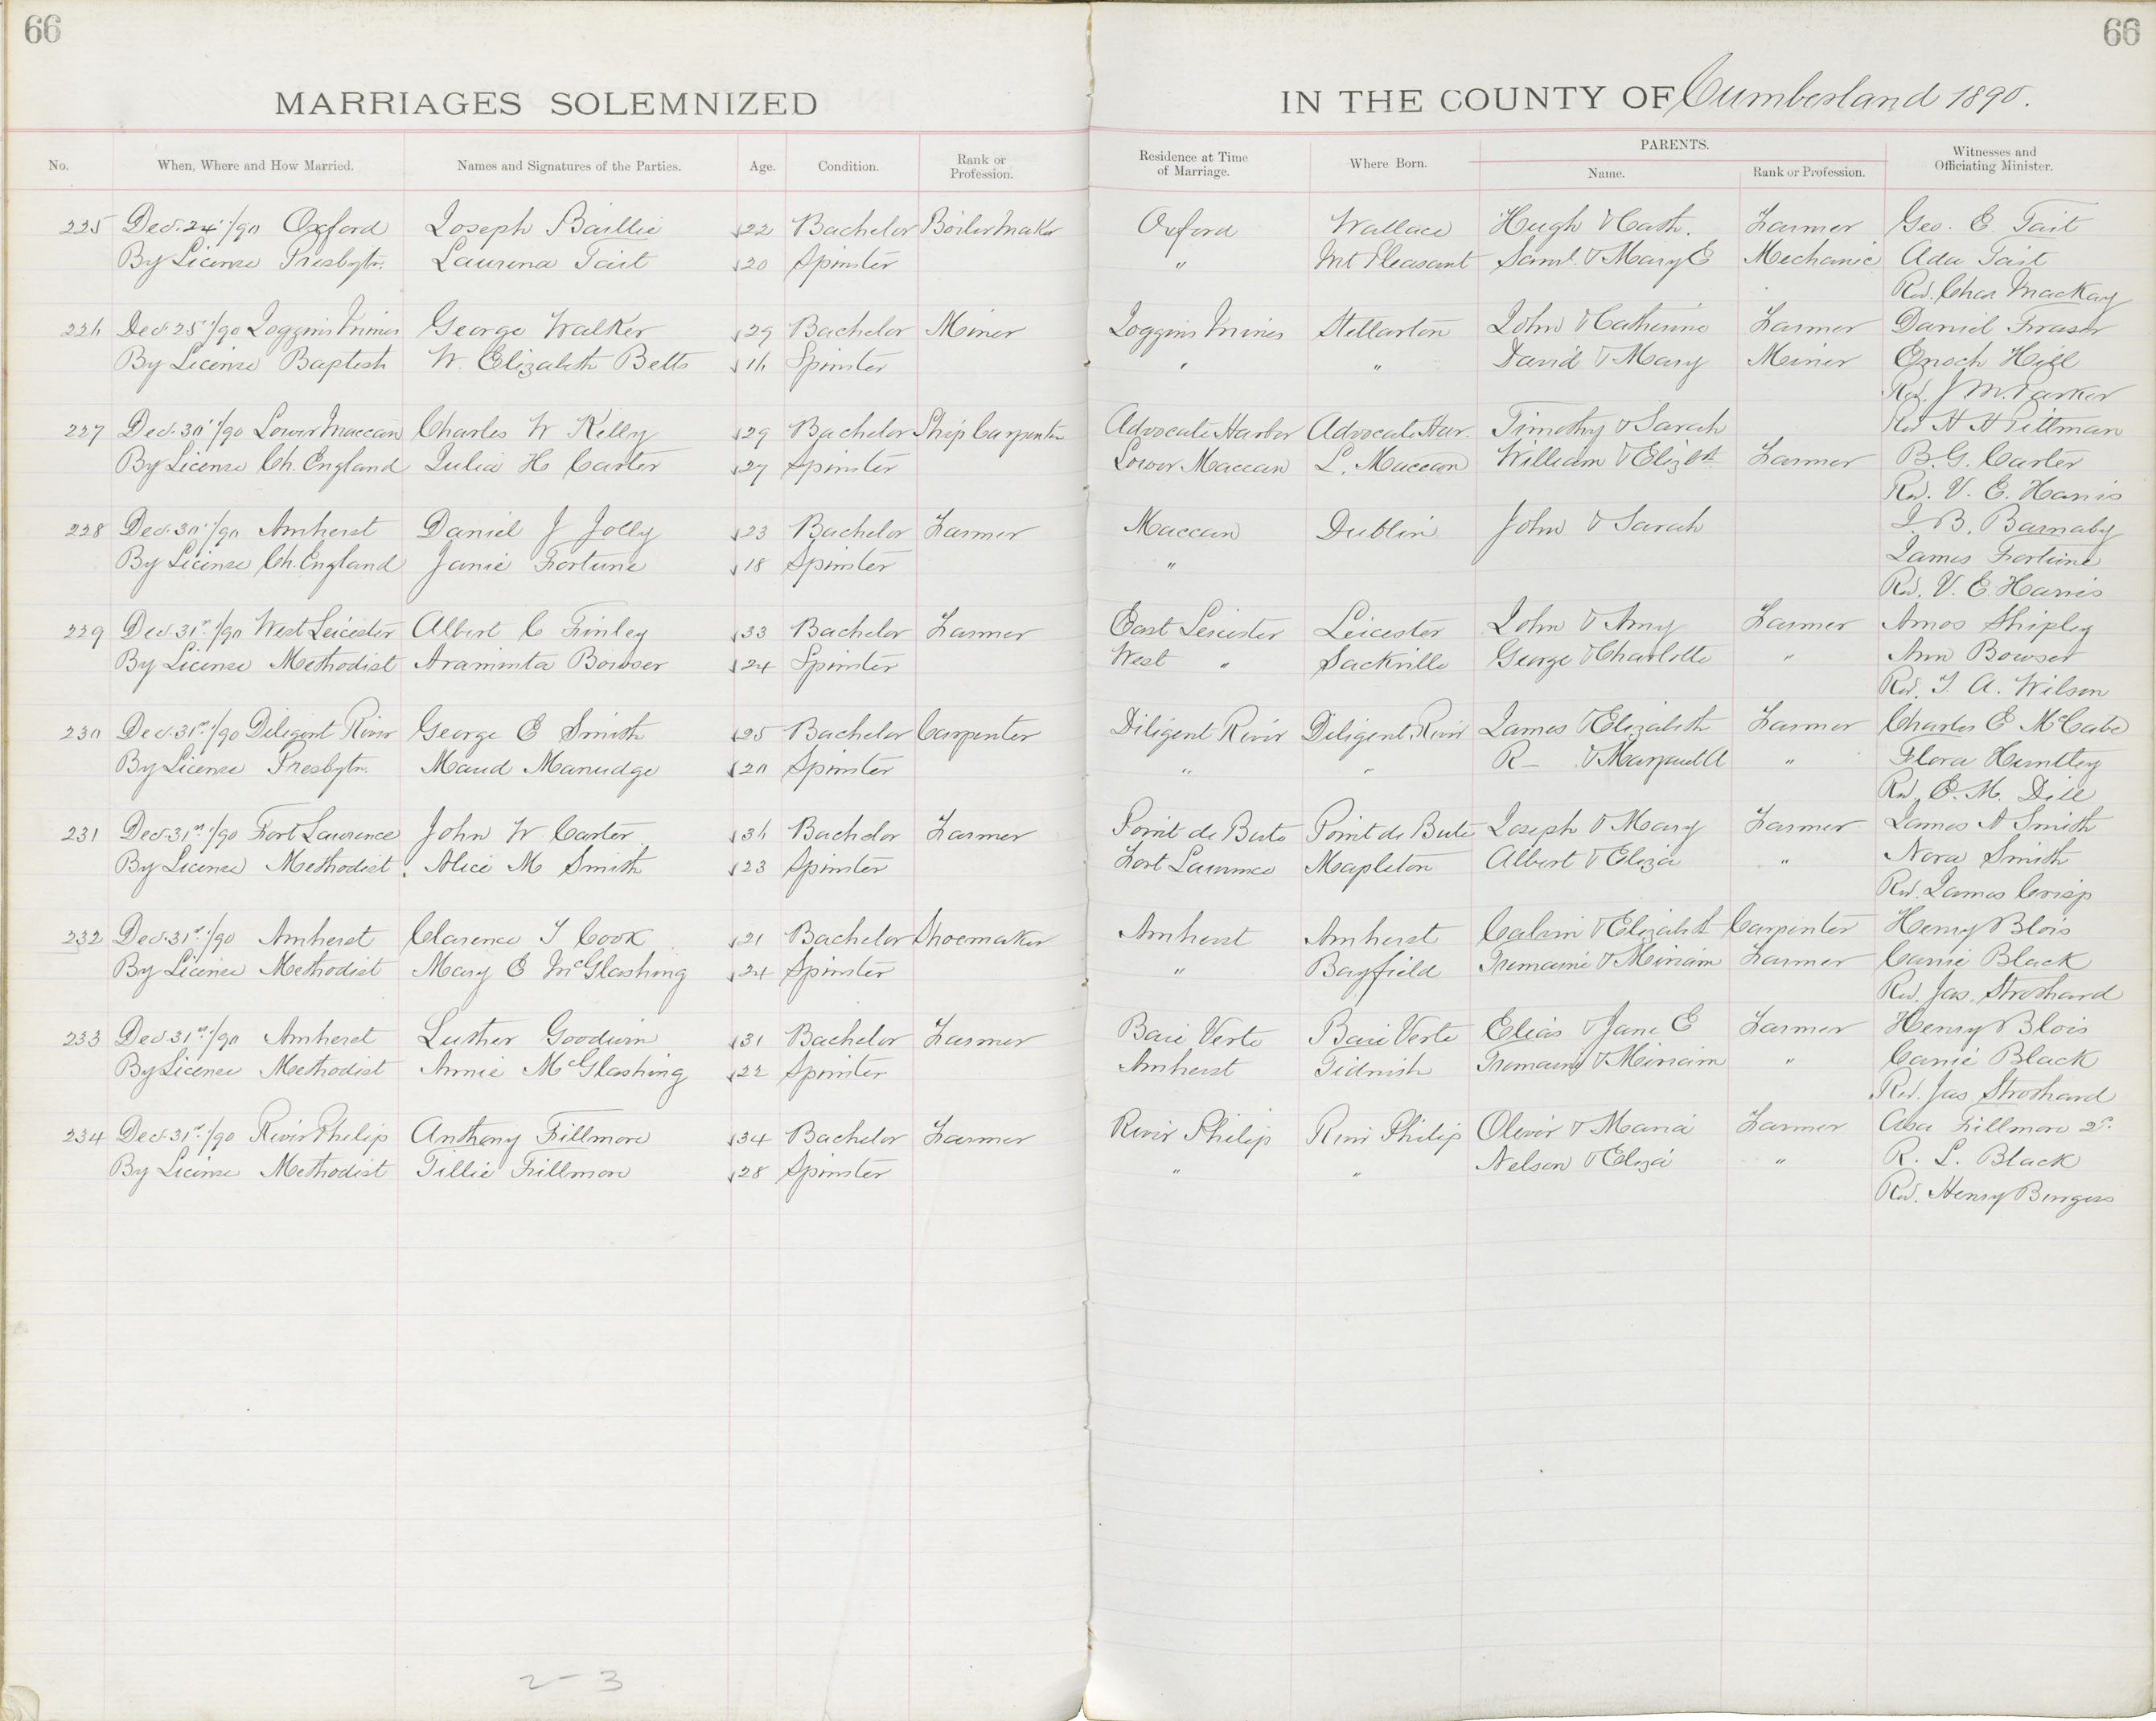 66
66
MARRIAGES SOLEMNIZED
IN THE COUNTY OF Cumberland 1890.
No. When, Where and How Married. Names and Signatures of the Parties. Age. Condition. Rank or Profession. Residence at Time of Marriage. Where Born. PARENTS. Name. Rank or Profession. Witnesses and Officiating Minister.
225 Dec. 24th/90 Oxford Joseph Baillie 22 Bachelor Boiler Maker Oxford Wallace Hugh & Cath. Farmer Geo. E. Tait
By License Presbytn. Laurena Tait 20 Spinster " Mt Pleasant Saml. & Mary E Mechanic Ada Tait
Rev. Chas MacKay
226 Dec 25th/90 Joggins Mines George Walker 29 Bachelor Miner Joggins Mines Stellarton John & Catherine Farmer Daniel Fraser
By License Baptist W. Elizabeth Betts 16 Spinster " " David & Mary Miner Enoch Hill
Rev. J M. Parker
227 Dec. 30th/90 Lower Maccan Charles W Kelly 29 Bachelor Ship Carpenter Advocate Harbor Advocate Har. Timothy & Sarah Rev H H Pittman
By License Ch. England Julia H Carter 27 Spinster Lower Maccan L. Maccan William & Elizbth Farmer B. G. Carter
Rev. V. E. Harris
228 Dec. 30th/90 Amherst Daniel J Jolly 23 Bachelor Farmer Maccan Dublin John & Sarah J. B. Barnaby
By License Ch. England Janie Fortune 18 Spinster " James Fortune
Rev. V. E. Harris
229 Dec. 31st/90 West Leicester Albert C Finley 33 Bachelor Farmer East Leicester Leicester John & Amy Farmer Amos Shipley
By License Methodist Araminta Bowser 24 Spinster West " Sackville George & Charlotte " Ann Bowser
Rev. T. A. Wilson
230 Dec. 31st/90 Diligent River George E Smith 25 Bachelor Carpenter Diligent River Diligent River James & Elizabeth Farmer Charles E McCabe
By License Presbytn. Maud Manudge 20 Spinster " " R— & A " Flora Huntley
Rev. E. M. Dill
231 Dec. 31st/90 Fort Lawrence John W. Carter 36 Bachelor Farmer Point de Bute Point de Bute Joseph & Mary Farmer James A Smith
By License Methodist Alice M Smith 23 Spinster Fort Lawrence Mapleton Albert & Eliza " Nora Smith
Rev. James Crisp
232 Dec. 31st/90 Amherst Clarence T Cook 21 Bachelor Shoemaker Amherst Amherst Calvin & Elizabeth Carpenter Henry Blois
By License Methodist Mary E McGlashing 24 Spinster " Bayfield Tremaine & Miriam Farmer Carrie Black
Rev. Jas. Strothard
233 Dec. 31st/90 Amherst Luther Goodwin 31 Bachelor Farmer Baie Verte Baie Verte Elias & Jane E Farmer Henry Blois
By License Methodist Annie McGlashing 22 Spinster Amherst Tidnish Tremaine & Miriam " Carrie Black
Rev. Jas Strothard
234 Dec. 31st/90 River Philip Anthony Fillmore 34 Bachelor Farmer River Philip River Philip Oliver & Maria Farmer Asa Fillmore 2d.
By License Methodist Tillie Fillmore 28 Spinster " " Nelson & Eliza " R. L. Black
Rev. Henry Burgess
2-3